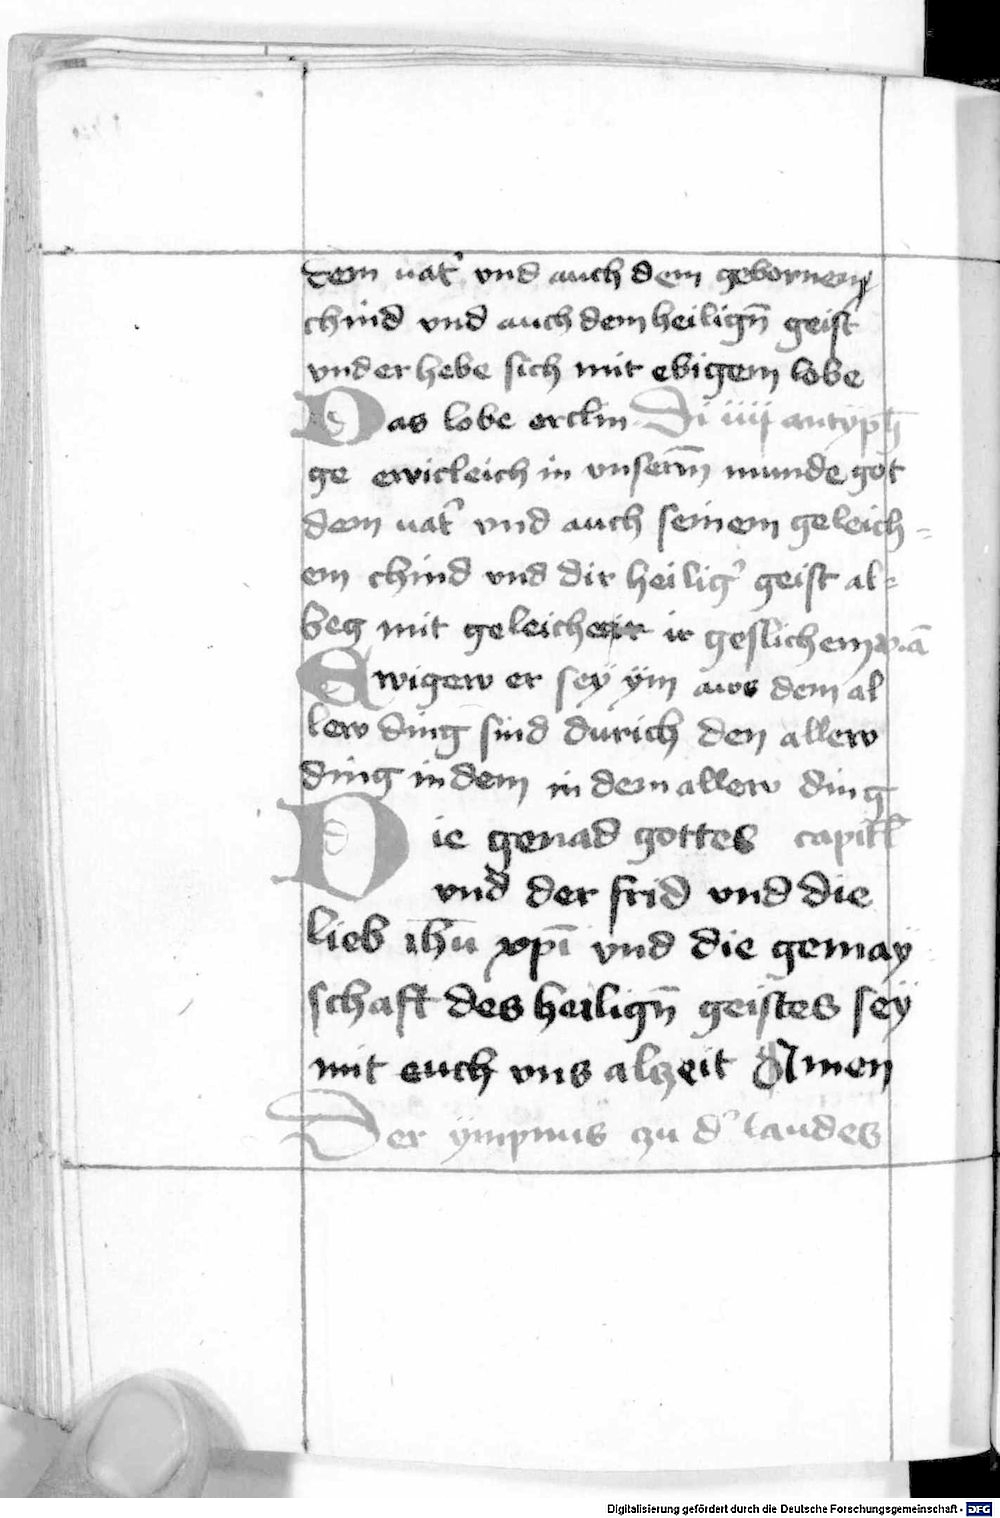 dem uat᾽ vnd auch dem gebornen
chind vnd auch dem heilign̄ geist
vnd er hebe sich mit ebigem lobe
Das lobe erclin Di iiij antyph̄
ge ewicleich in vnserm̄ munde got
dem uat᾽ vnd auch seinem geleich=
em chind vnd dir heilig᾽ geist al=
beg mit geleicher ir geslichem
Ewigew er sey ẏm aws dem al
lew ding sind durich den allew
ding in dem in dem allew ding
Die genad gottes capitł
vnd der frid vnd die
lieb ihū xpī vnd die gemaÿ
schaft des heilign̄ geistes seÿ
mit euch vns alzeit Amen
Der ÿmpnus zu d᾽ laudes
Digitalisierung gefördert durch die Deutsche Forschungsgemeinschaft - DFG